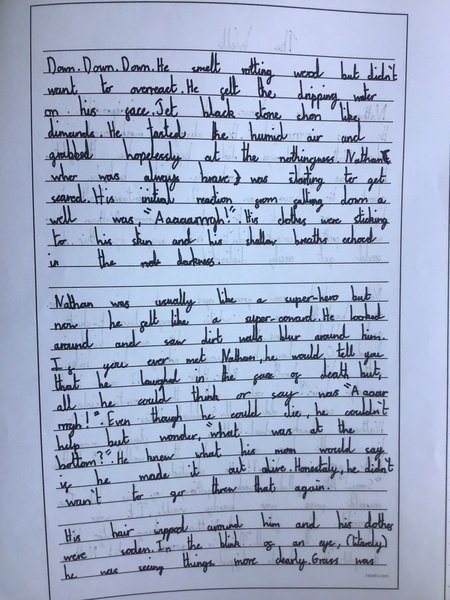 Down. Down. Down. He smelt rotting wood but didn't
want to overreact. He felt the dripping water
on his face. Jet black stone shon like
dimands. He tasted the humid air and
grabbed hopelessly at the nothingness. Nathan (
who was always brave) was starting to get
scared. His initial reaction from falling down a
well was, "Aaaaarrrgh!". His clothes were sticking
to his skin and his shallow breaths echoed
in the darkness.
Nathan was usually like a super-hero but
now he felt like a super-coward. He looked
around and saw dirt walls blur around him.
If you ever met Nathan, he would tell you
that he laughed in the face of death but,
all he could think or say was "Aaaar
rrgh!". Even though he could die, he couldn't
help but wonder, "what was at the
bottom?". He knew what his mom would say
if he made it out alive. Honestaly, he didn't
wan't to go threw that again.
His hair wipped around him and his clothes
were soden. In the blink of an eye, (litarely)
he was seeing things more clearly. Grass was